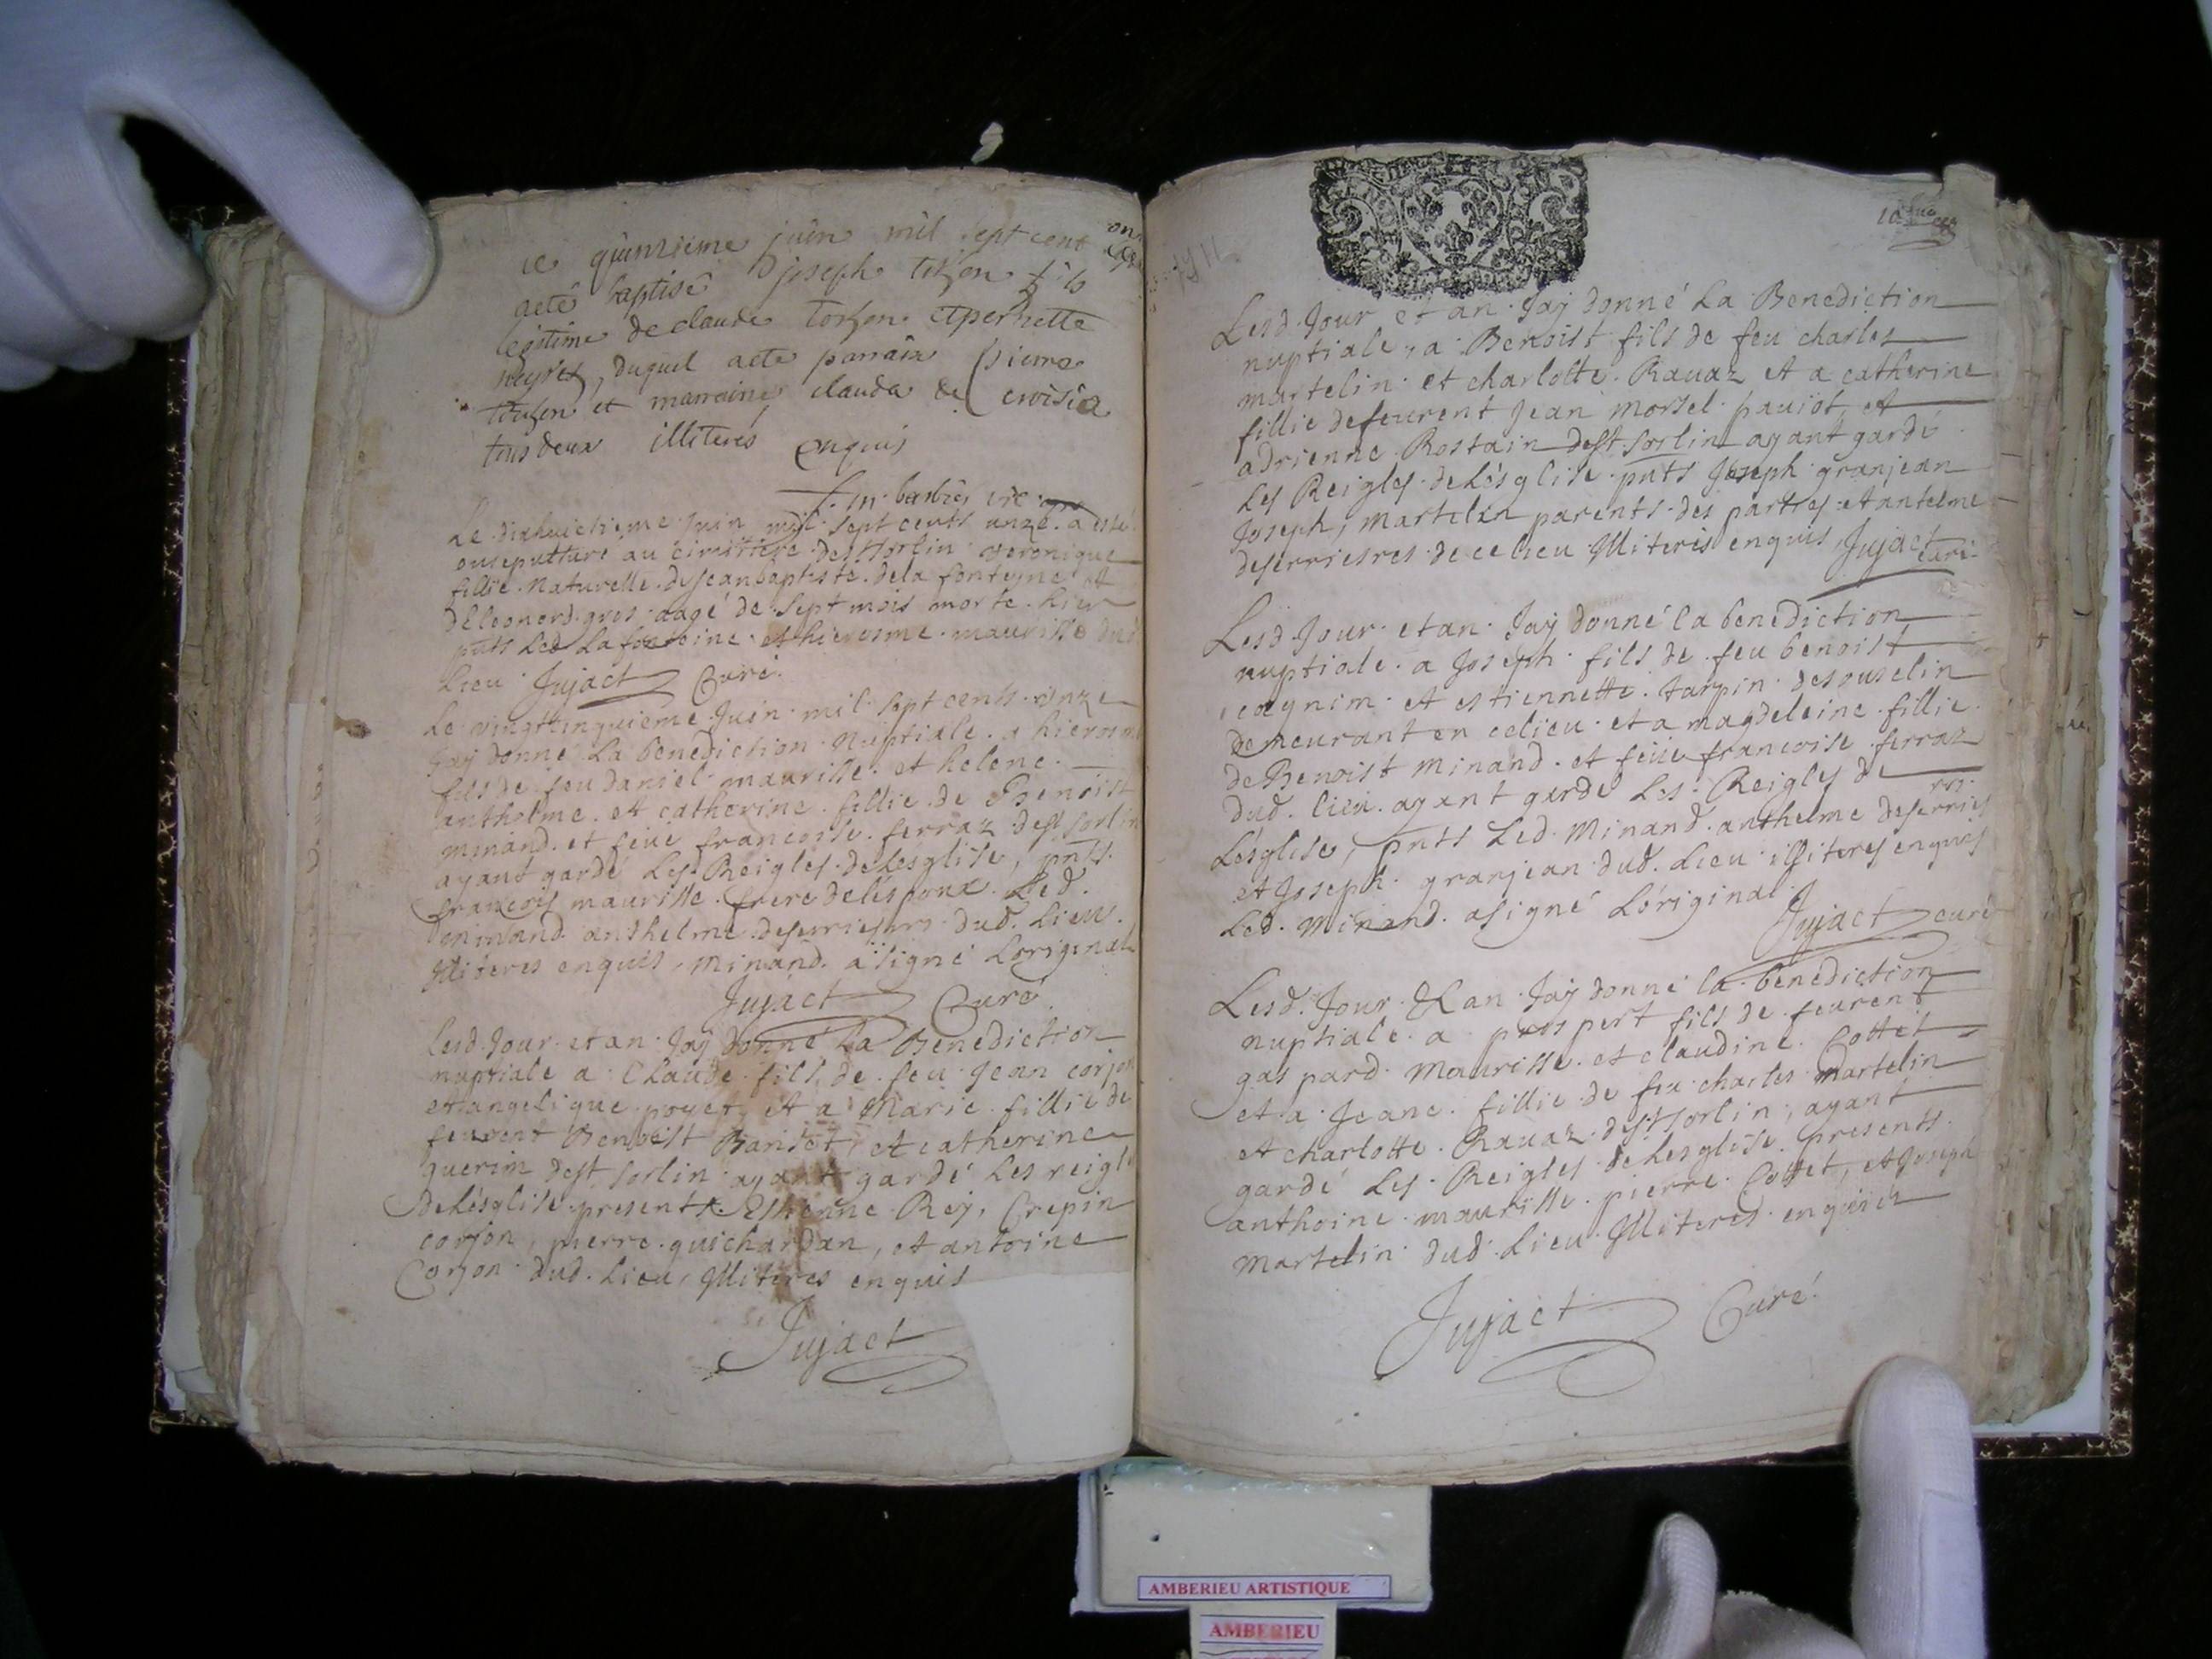 le quinzieme juin mil sept cent onze
aeté baptisé joseph torjon fils
legitime de claude torjon et pernette
neyret, duquel aeté parrain pierre
torjon et marraine clauda de croisia
tous deux illiterés enquis
f. m. barbier vic
Le dixhuictieme Juin mil sept cents unze a esté
ensepulturé au cimitiere de st sorlin veronique
fillie naturelle de Jean baptiste de la fonteyne et
d'Eleonord gros aagé de sept mois morte hier
pnts Led Lafonteine et hierosme maurisse dud
Lieu Jujact Curé
Le vingtcinquieme Juin mil sept cents onze
Jay donné La benediction nuptiale a hierosme
fils de feu daniel maurisse et helene
anthelme et catherine fillie de Benoist
minand et feüe francoise ferraz de st sorlin
ayant gardé Les Reigles de Lesglise, pnts
francois maurisse frere de léspoux Led.
minand anthelme deserriesres dud. Lieu
Illiteres enquis, minand a signé Loriginal
Jujact Curé
Lesd Jour et an Jay donné La Benediction
nuptiale a Claude fils de feu Jean corjon
et angelique poyet et a Marie fillie de
feurent Benoist Bariot, et catherine
guerin de st sorlin ayant gardé Les reigles
de Lésglise presents Estienne Rey, Crepin
corjon, pierre guichardan, et antoine
Corjon dud. Lieu, Illiteres enquis
Jujact
10
Lesd Jour et an Jay donné La Benediction
nuptiale, a Benoist fils de feu charles
martelin et charlotte Ravaz et a catherine
fillie de feurent Jean morsel paviot, et
adrienne Rostain de st sorlin ayant gardé
Les Reigles de Lésglise pnts Joseph granjean
Joseph, martelin parents des parties et antelme
deserriesres de ce lieu Illiteres enquis Jujact curé
Lesd Jour et an Jay donné la benediction
nuptiale a Joseph fils de feu benoist
cognim et estiennette tarpin de souselin
demeurant en celieu et a magdeleine fillie
de Benoist minand et feüe francoise ferraz
dud. lieu ayant gardé Les Reigles de
Lésglise, pnts Led Minand anthelme deserriesres
et Joseph granjean dud. Lieu illiteres enquis
Led. Minand a signé Lóriginal
Jujact curé
Lesd. Jour & Lan Jay donné la benediction
nuptiale a prospert fils de feurent
gaspard Maurisse et claudine Cottet
et a Jeane fillie de feu charles martelin
et charlotte Ravaz de st sorlin, ayant
gardé Les Reigles de Lesglise presents
anthoine maurisse pierre Cottet, et Joseph
martelin dud Lieu Illiteres enquis
Jujact Curé
AMBERIEU ARTISTIQUE
AMBERIEU